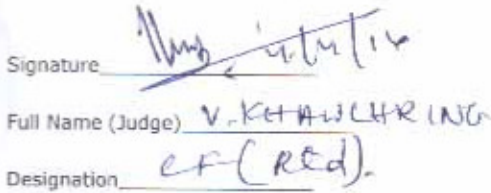 Signature
Full Name (Judge) V. KHAWLHRING
Designation CF (Retd).